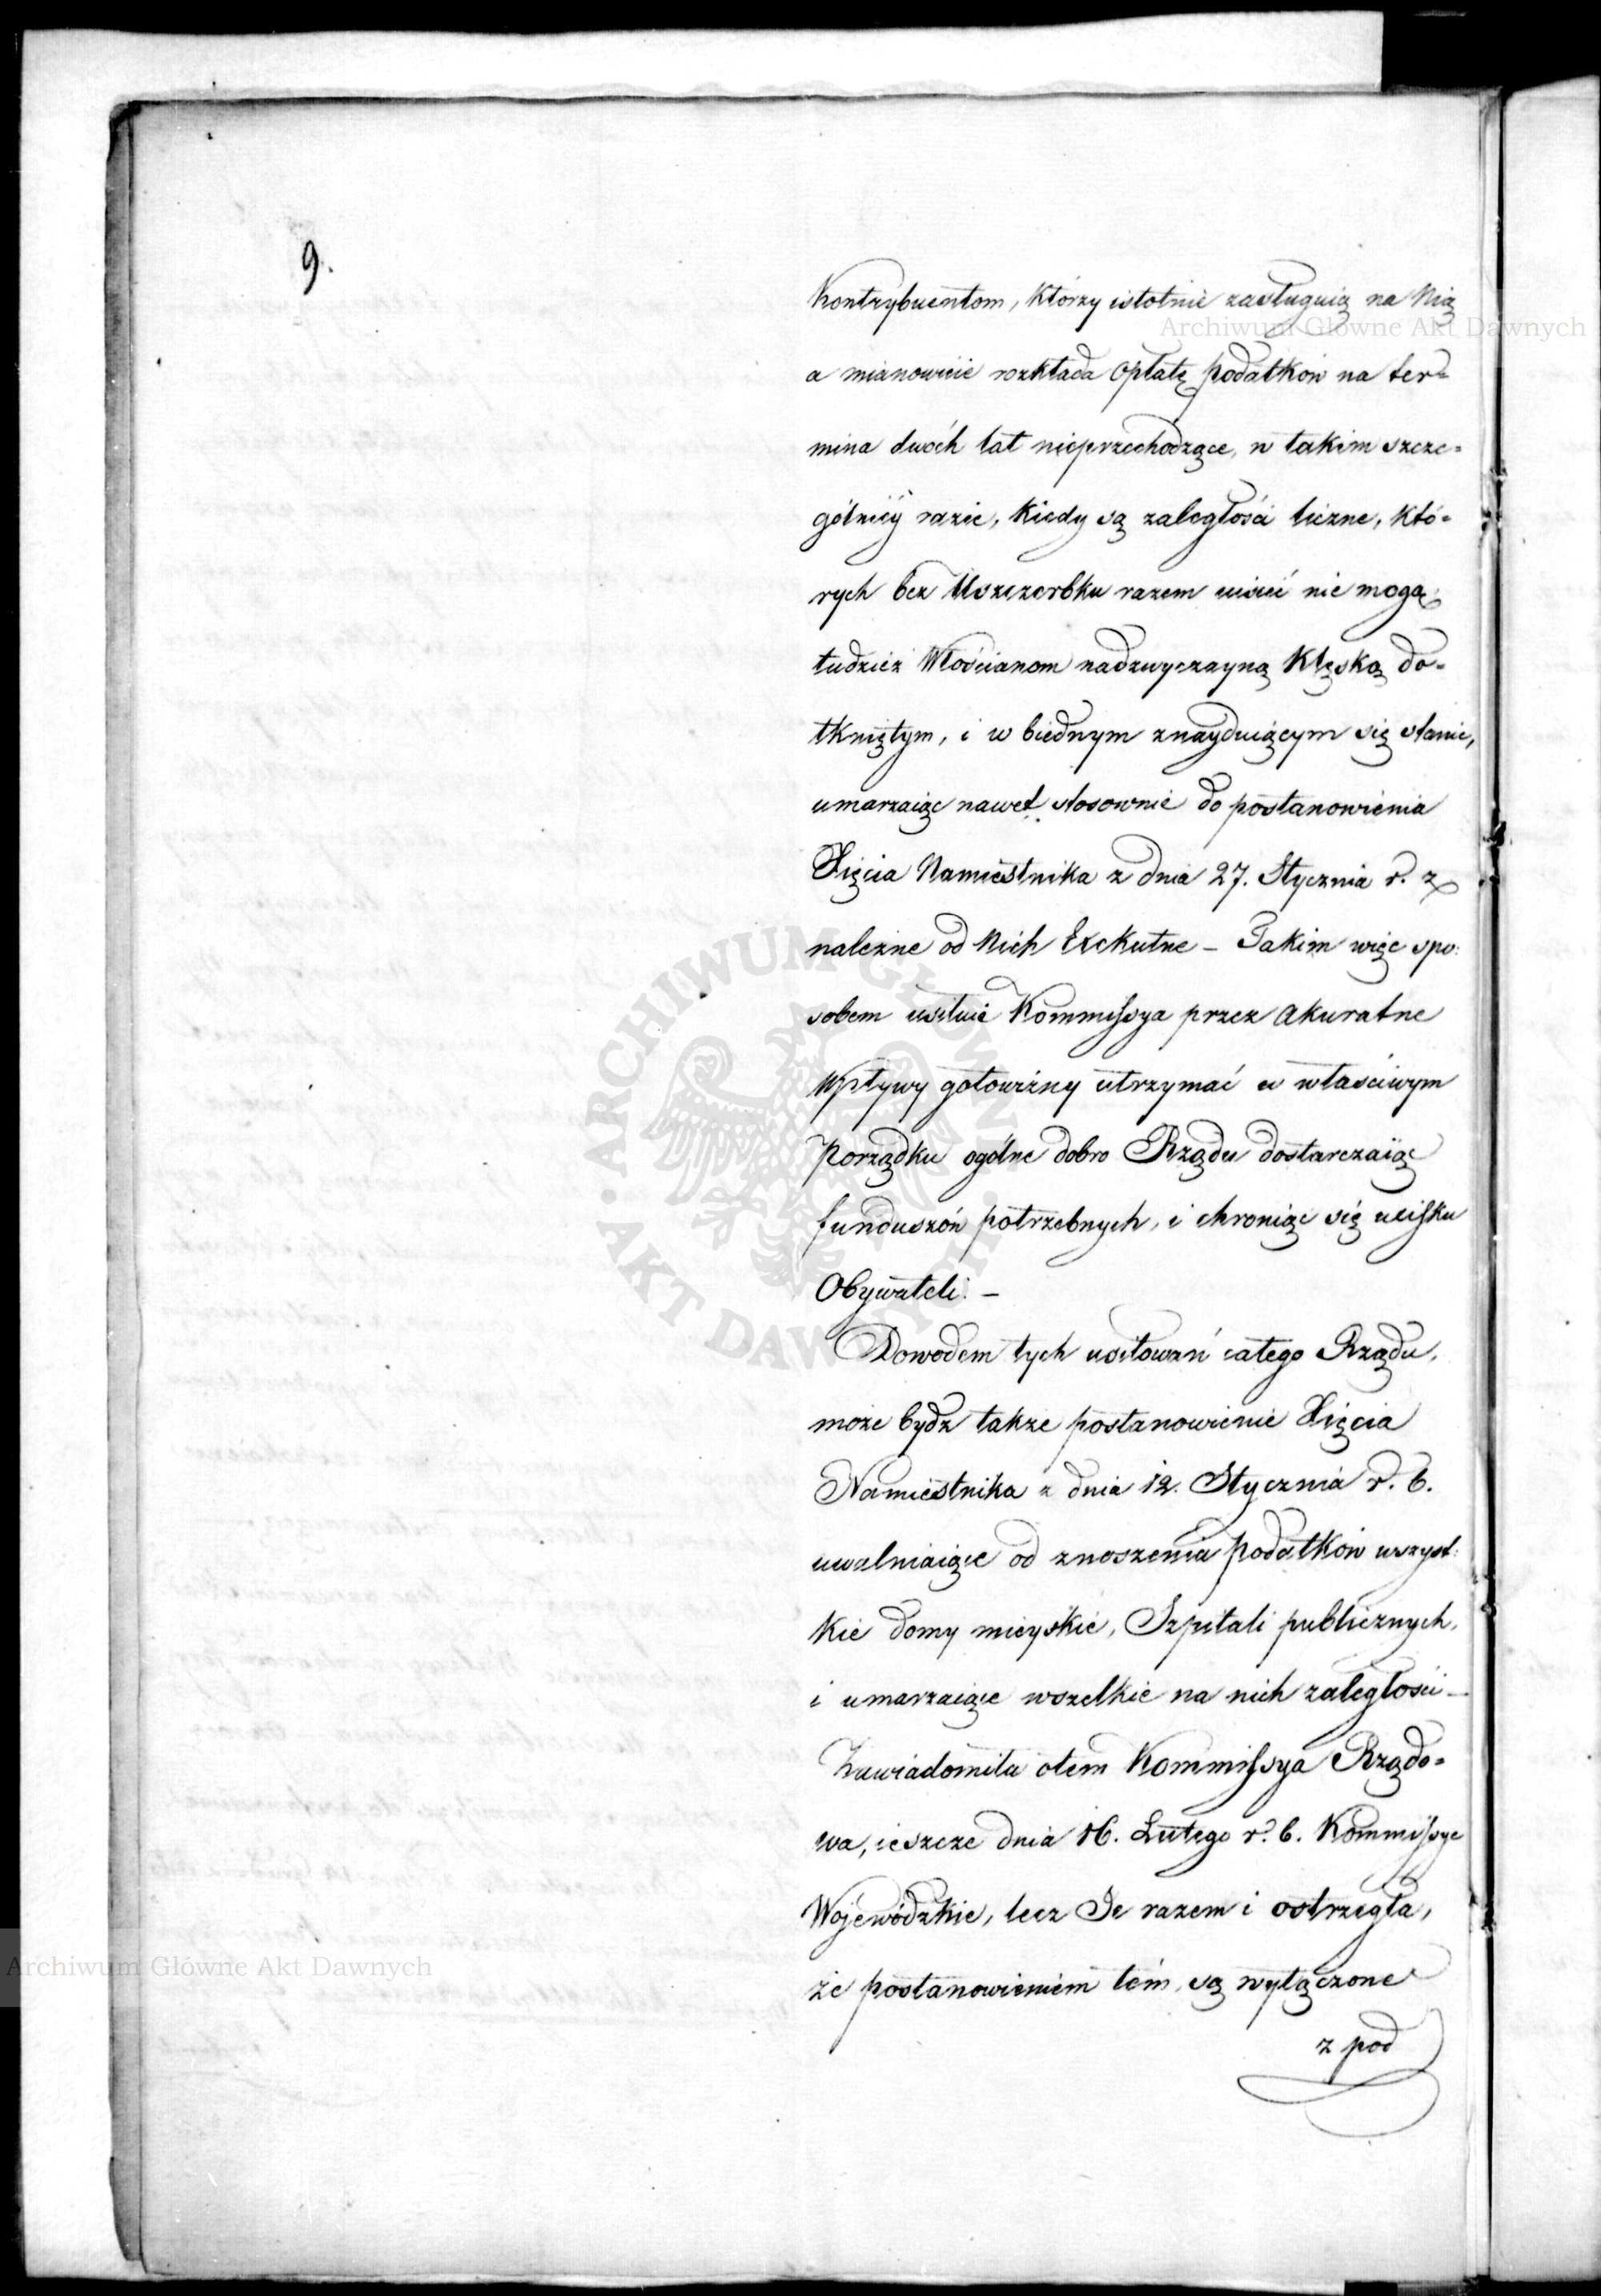 9.
Kontrybuentom, którzy istotnie zasługuią na Nią
a mianowicie rozkłada opłatę podatków na ter=
mina dwóch lat nieprzechodzące, w takim szcze=
gólniéy razie, kiedy są zaległości liczne, któ=
rych bez Uszczerbku razem uiścić nie mogą;
tudzież Włościanom nadzwyczayną Klęską do=
tkniętym, i w biednym znayduiącym się stanie,
umarzaiąc nawet stosownie do postanowienia
Xięcia Namiestnika z dnia 27. Stycznia r. z
należne od Nich Exekutne – Takim więc spo:
sobem usiłuie Kommissya przez akuratne
Wpływy gotowizny utrzymać w właściwym
porządku ogólne dobro Rządu dostarczaiąc
funduszów potrzebnych, i chroniąc się ucisku
Obywateli. –
Dowodem tych usiłowań całego Rządu,
może bydz także postanowienie Xięcia
Namiestnika z dnia 12. Stycznia r. b.
uwalniaiące od znoszenia podatków wszyst:
kie domy mieyskie, Szpitali publicznych,
i umarzaiące wszelkie na nich zaległości –
Zawiadomiła otem Kommissya Rządo=
wa, ieszcze dnia 16. Lutego r. b. Kommissye
Wojewódzkie, lecz Je razem i ostrzegła,
że postanowieniem tém, są wyłączone
z pod
Archiwum Główne Akt Dawnych
Archiwum Główne Akt Dawnych
ARCHIWUM GŁÓWNE · AKT DAWNYCH ·